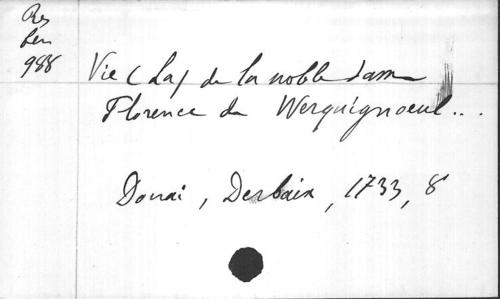 Res
Len
988
Vie (La) de la noble dame
Florence de Werquignoeul...
Douai, Derbaix, 1733, 8°